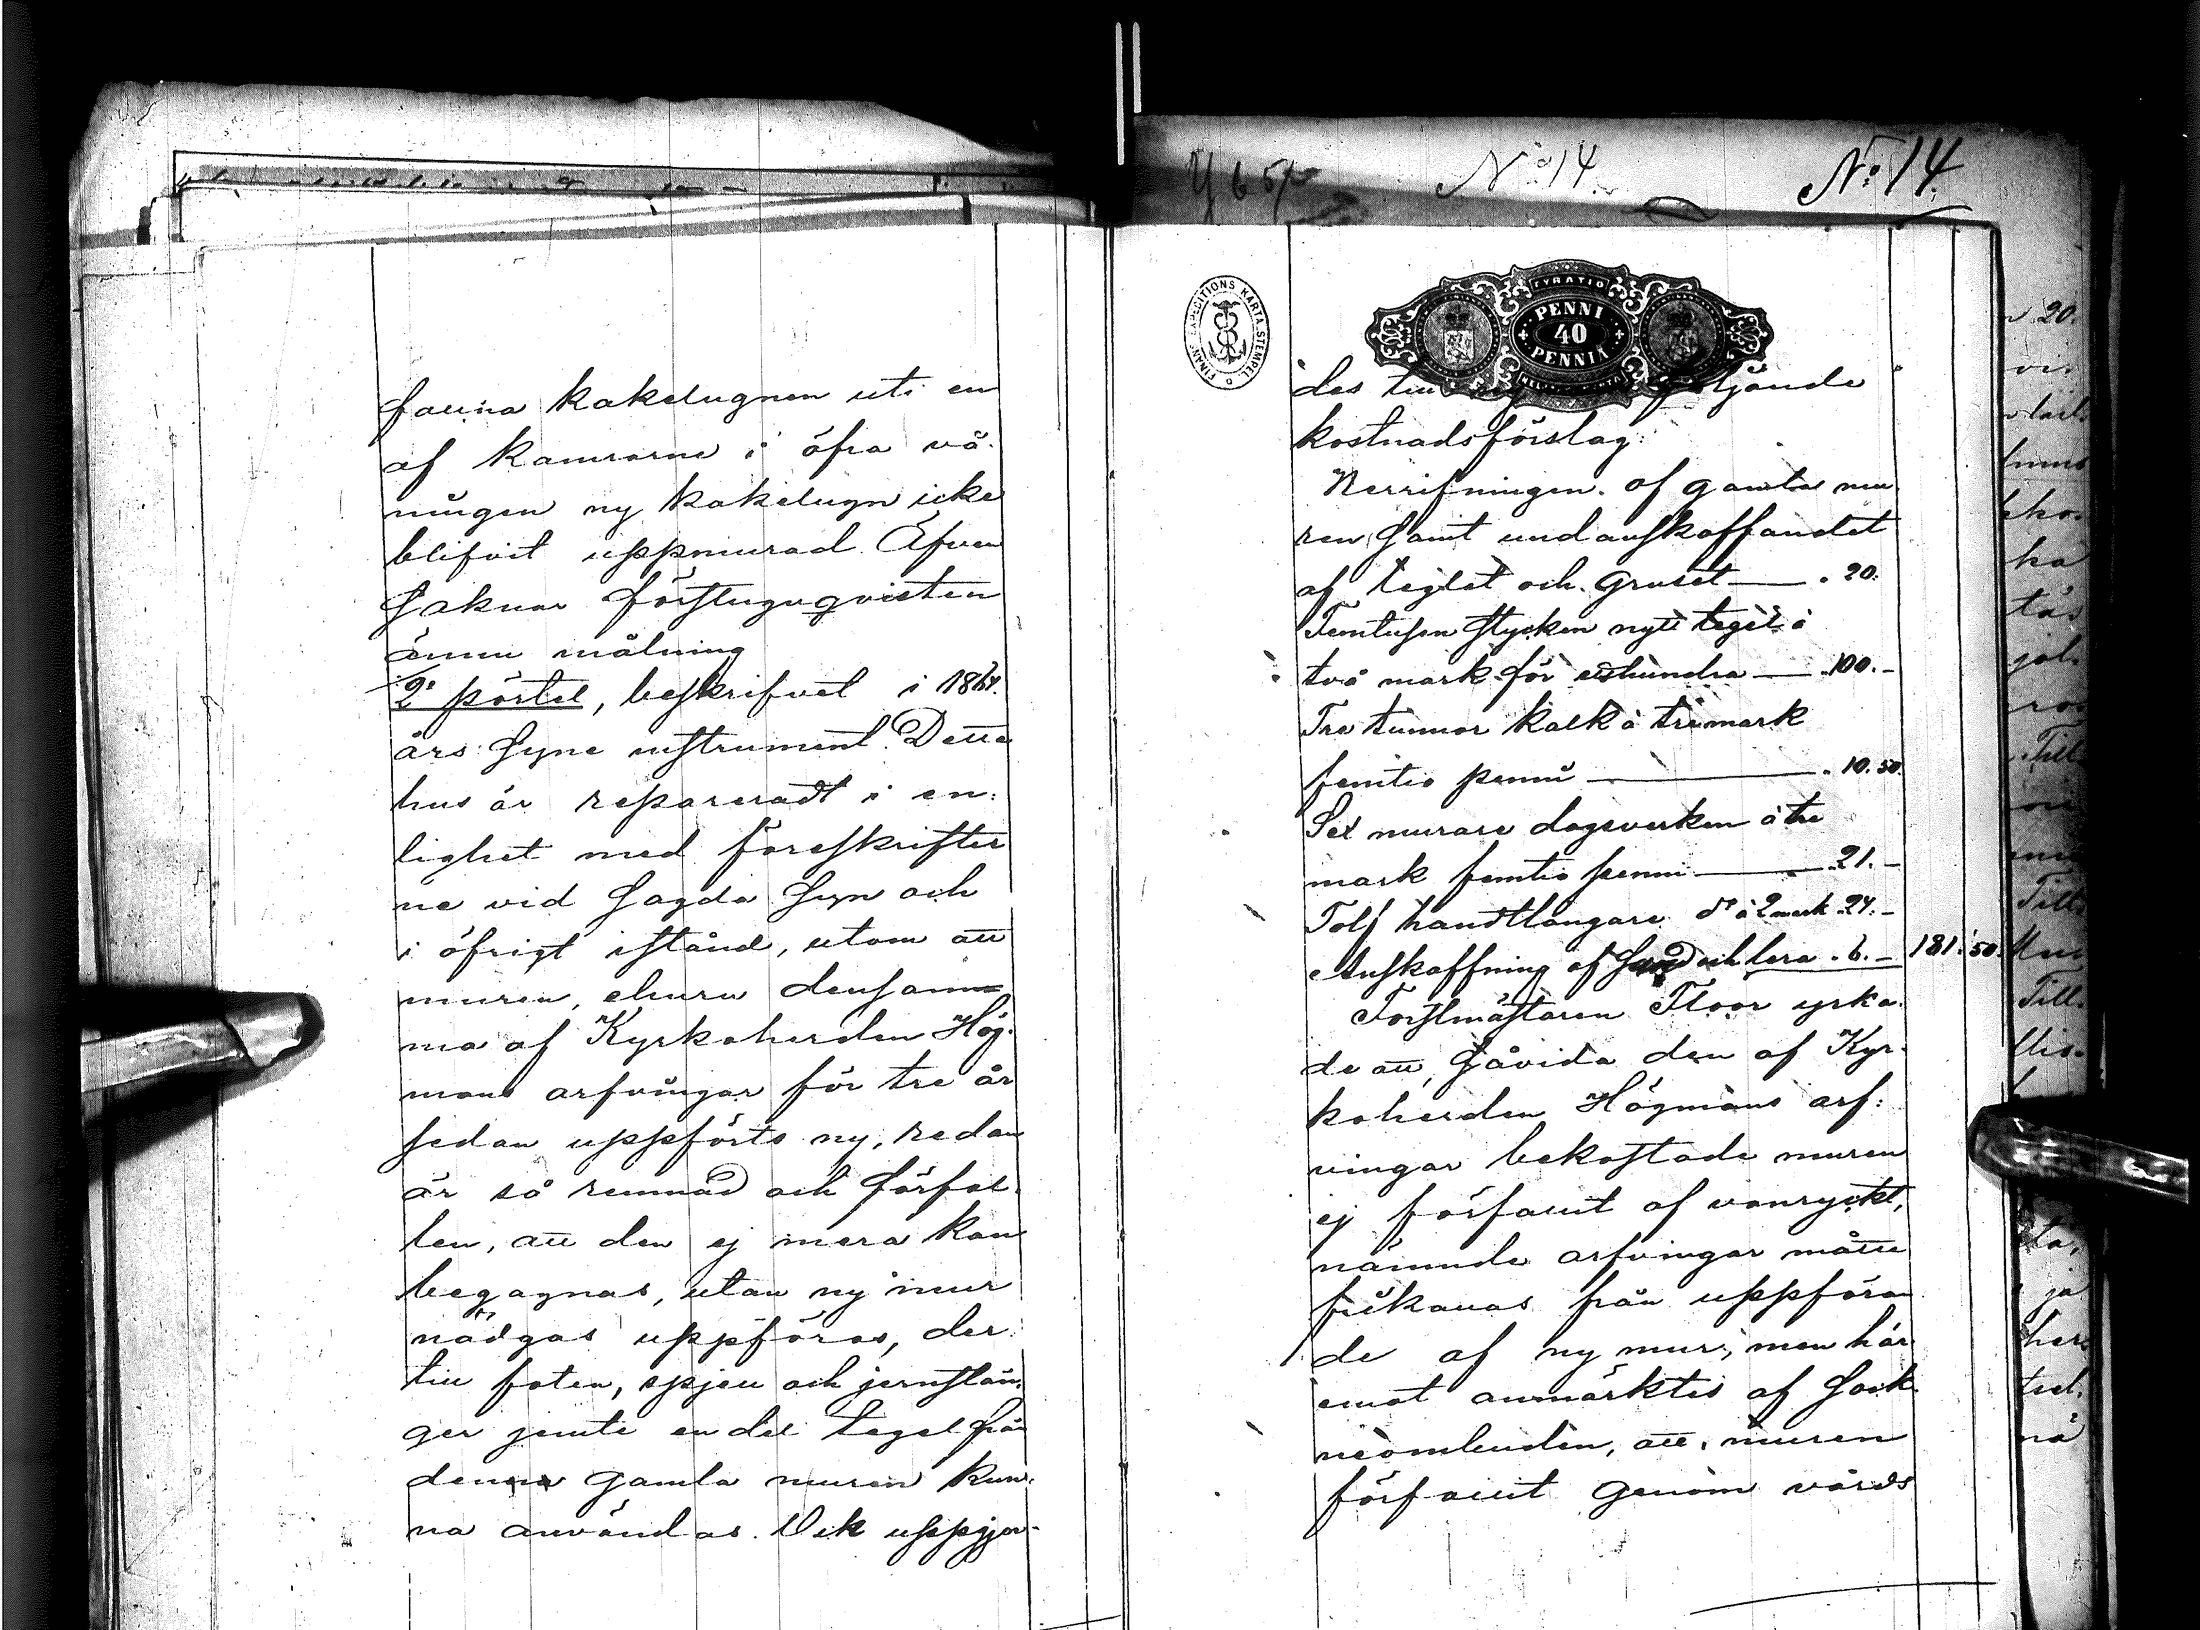 fallna kakelugnen uti en
af kamrarne i öfra vå-
ningen ny kakelugn icke
blifvit uppmurad. Äfven
saknar förstuguqvisten
ännu målning
2o pörtet, beskrifvet i 1864
års syne instrument. Detta
hus är repareradt i en-
lighet med föreskrifter
ne vid sagda syn och
i öfrigt istånd, utom att
muren, ehuru densam-
ma af Kyrkoherden Hög-
mans arfvingar för tre år
sedan uppförts ny, redan
är så remnad och förfal-
len, att den ej mera kan
begagnas, utan ny mur
nödgas uppföras, der-
till foten, spjell och jernstän-
ger jemte en del tegel från
denna gamla muren kun-
na användas. Och uppgjor-
No 14
No 14
FINANS EXPEDITIONS KARTA.STEMPEL
PENNI
40
PENNIÄ
des till följande
kostnadsförslag:
Nerrifningen af gamla mu-
ren samt undanskaffandet
af teglet och gruset . 20.
Femtusen stycken nytt tegel à
två mark för etthundra . 100. -
Tre tunnor kalk à tre mark
femtio penni . 10. 50.
Sex murare dagsverken à tre
mark femtio penni . 21. -
Tolf handtlangare do à 2 mark . 24. -
Anskaffning af sand och lera . 6. - 181. 50.
Forstmästaren Floor yrka-
de att, såvida den af Kyr-
koherden Högmans arf-
vingar bekostade muren
ej förfallit af vanryckt,
nämnde arfvingar måtte
frikänas från uppföran
de af ny mur; men här
emot anmärktes af sock-
neombuden, att muren
förfallit genom vårds